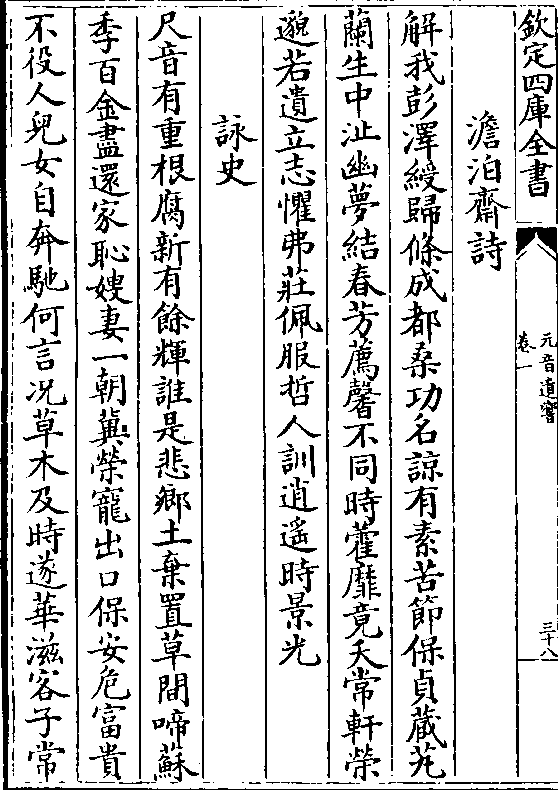 欽定四庫全書
元音遺響
卷一
三十八
澹泊齋詩
解我彭澤綬歸條成都桑功名諒有素苦節保貞蔵芄
蘭生中沚幽夢結春芳薦馨不同時藿靡竟夭常軒榮
邈若遺立志懼弗莊佩服哲人訓逍遥時景光
詠史
尺音有重根腐新有餘輝誰是悲鄉土棄置草間啼蘇
季百金盡還家恥嫂妻一朝冀榮寵出口保安危富貴
不役人兒女自奔馳何言况草木及時遂華滋客子常